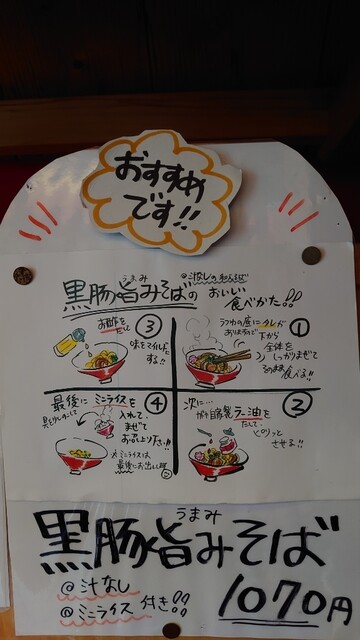 おすすめ
です!!
黒豚旨みそばの
うまみ
@汁なしのまぜそば
おいしい
食べかた!!
①
ラフカの底にタレが
ありますので下から
全体を
しっかりまぜて
そのまま
食べる!!
②
次に…
自家製ラー油を
たして、
ピリッと
させる!!
③
お酢を
だし
味をマイルドに
する!!
④
最後にミニライスを
入れて、
まぜて
お召し上り下さい!!
※ミニライスは
最後にお出しします
うまみ
黒豚旨みそば
@汁なし
@ミニライス付き!!
1070円